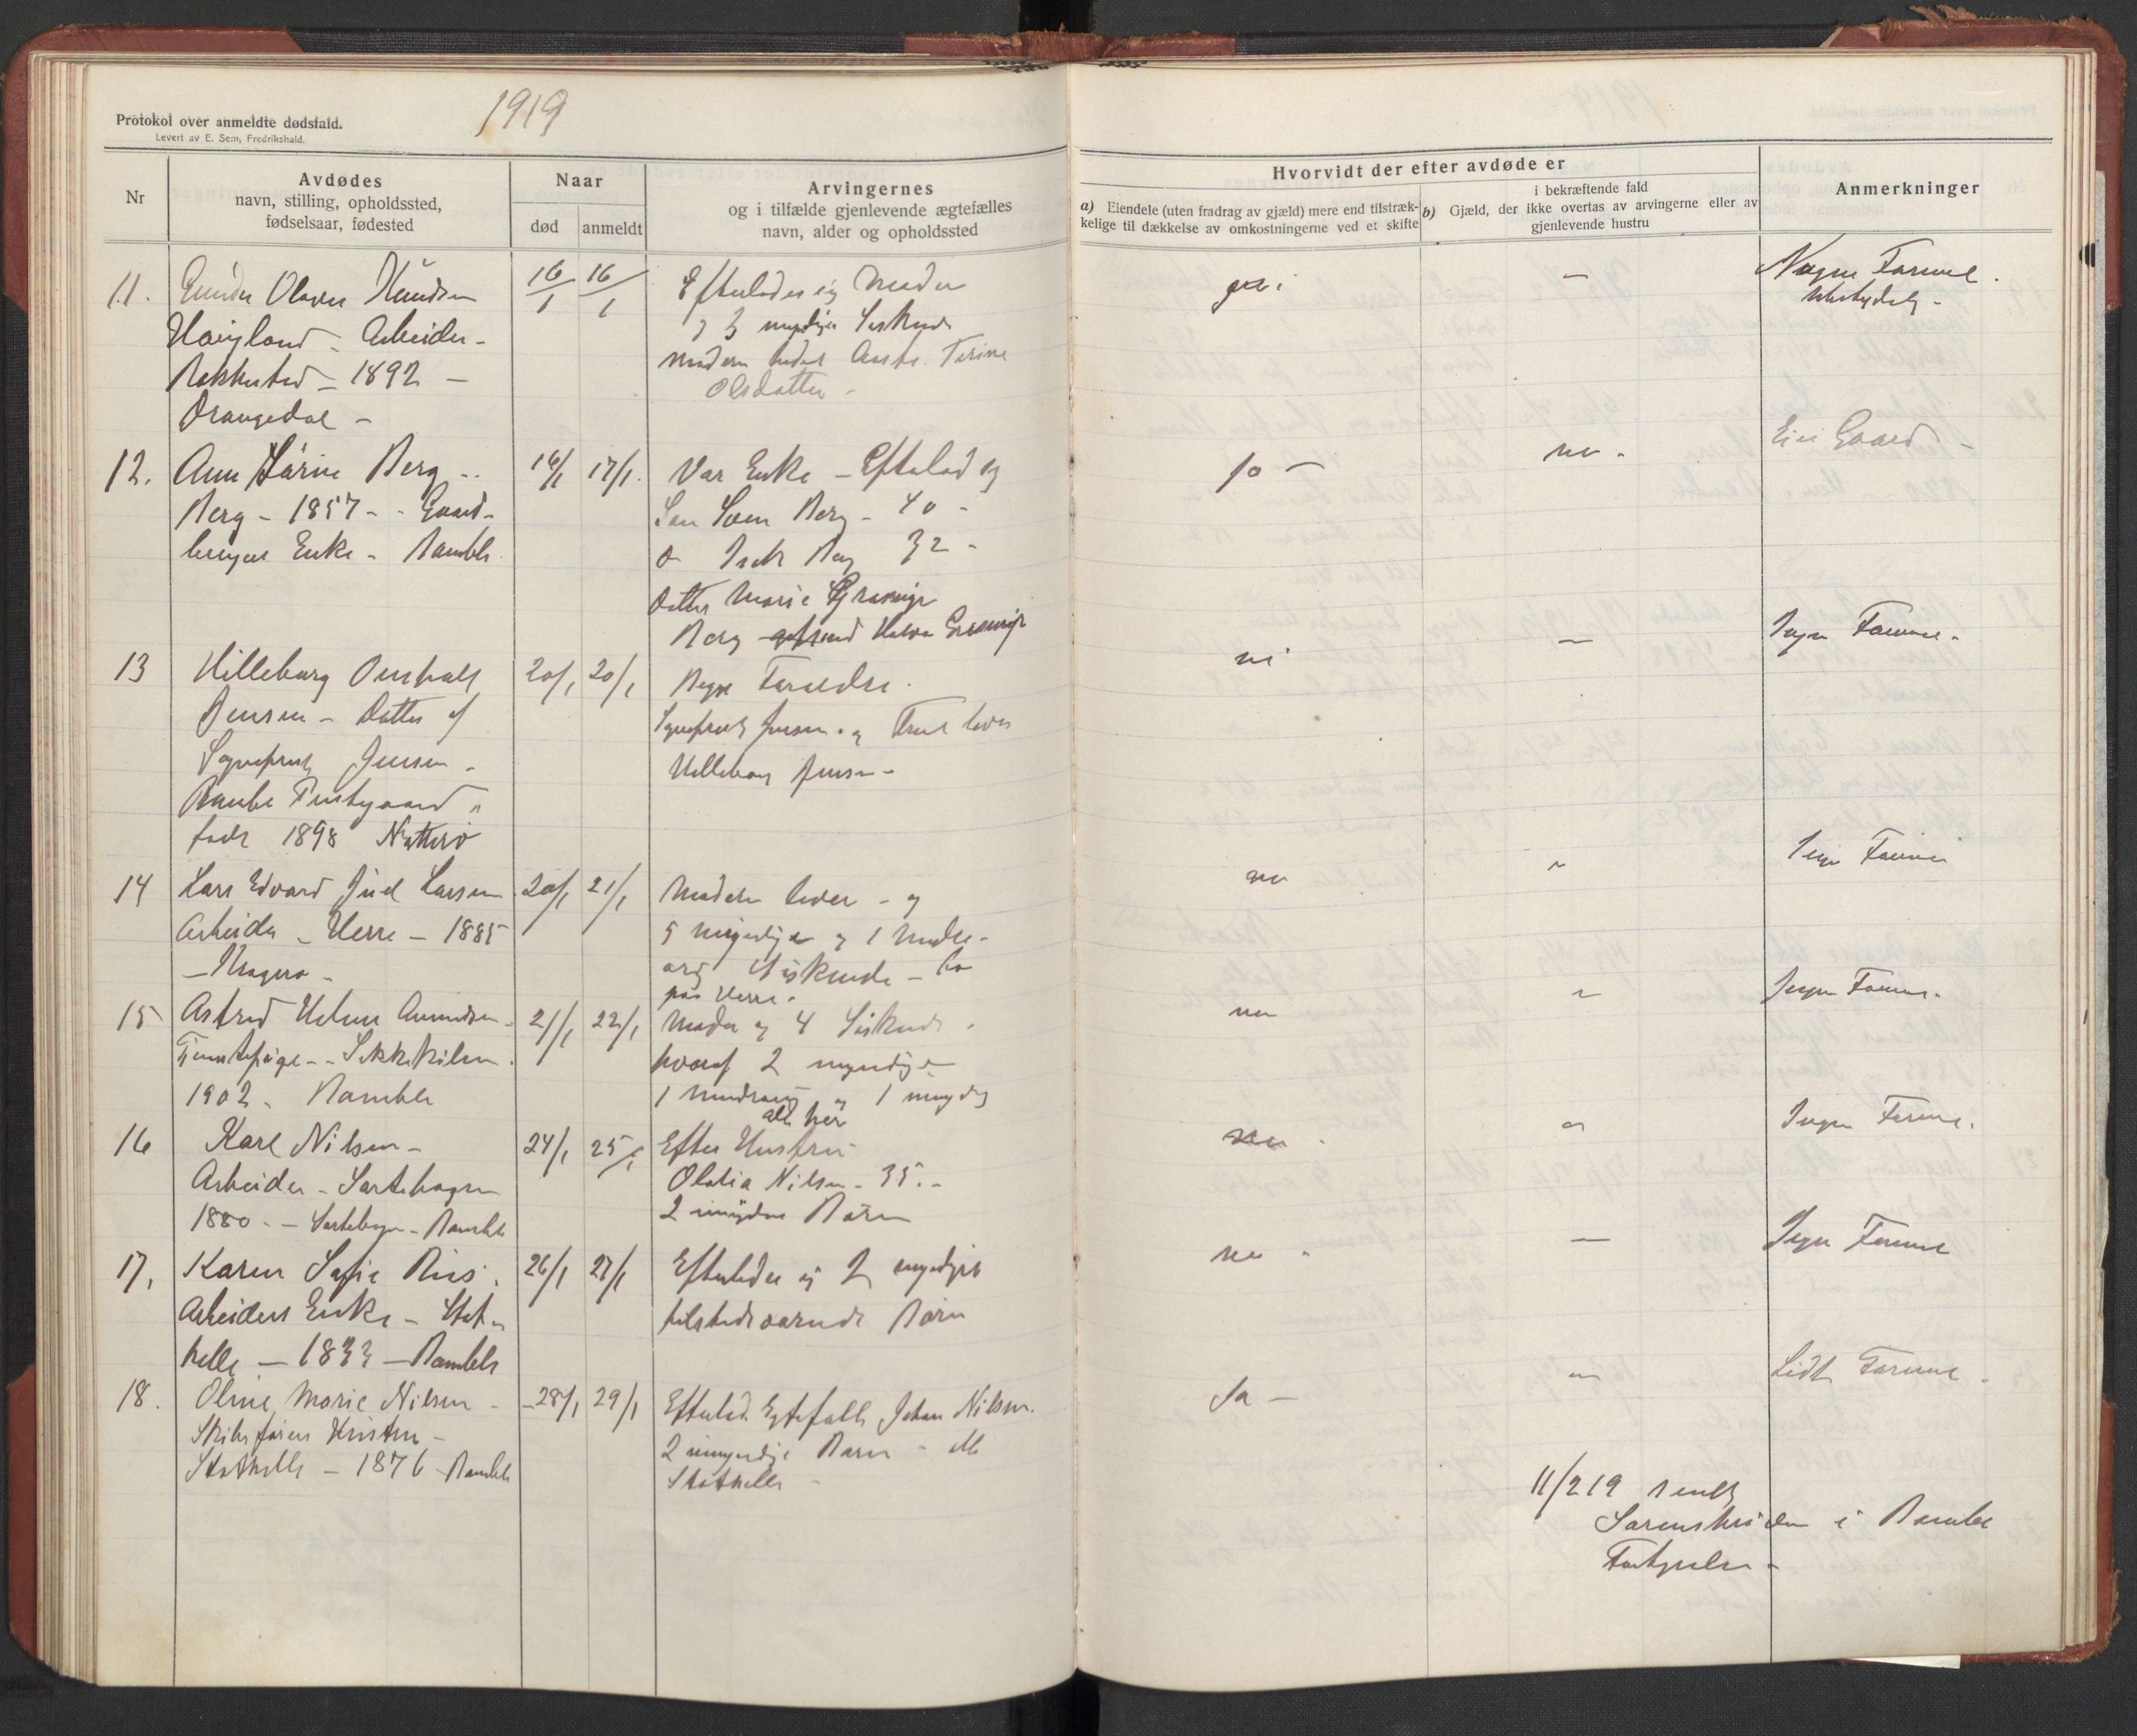 Protokol over anmeldte dødsfald.
Levert av E. Sem, Fredrikshald.
1919
Nr
Avdødes
navn, stilling, opholdssted,
fødselsaar, fødested
Naar
død
anmeldt
Arvingernes
og i tilfælde gjenlevende ægtefælles
navn, alder og opholdssted
Hvorvidt der efter avdøde er
a) Eiendele (uten fradrag av gjæld) mere end tilstræk-
kelige til dækkelse av omkostningerne ved et skifte
i bekræftende fald
b) Gjæld, der ikke overtas av arvingerne eller av
gjenlevende hustru
Anmerkninger
11.
Olaves Knudsen
Arbeider -
1892 -
Drangedal -
16/1
16/1
Efterlader sig Moder
3 myndige Søskende
Moderen heder Aaste Terine
Olsdatter -
-
Formue.
ubetydelig -
12.
Berg -
Berg - 1857 - Gaard-
brugers Enke - Bamble
16/1
17/1.
Var Enke - Efterlod sig
Søn Berg - 40 -
Berg 32 -
Datter Marie
Berg
Ja -
nei -
Eier Gaard -
13
Hilleborg Omholt
Jensen - Datter af
Sogneprest Jensen -
Bamble Prestegaard -
født 1898 Nøtterø
20/1
20/1
Begge Forældre.
Sogneprest Jensen og Frue lever
Jensen -
nei
-
Ingen Formue -
14
Lars Edvard Juel Larsen
Arbeider - Herre - 1885
- Kragerø -
20/1
21/1
Moderen lever - og
5 myndige og 1 mindre-
arig Søskende - bor
paa Herre.
nei
Ingen Formue
15
Astrid Amundsen -
Tjenestepige - Sekkekilen.
1902 - Bamble
21/1
22/1
Moder og 4 Søskende
hvoraf 2 myndige
1 mindreaarig og 1 myndig
alle her
nei
Ingen Formue.
16
Karl Nilsen -
Arbeider -
1880 - - Bamble
24/1
25/1
Efter Hustru
Nilsen - 35. -
2 umyndige Børn
nei -
Ingen Formue.
17.
Karen Sofie Riis.
Arbeiders Enke - Stat-
helle - 1833 - Bamble
26/1
27/1
Efterlader sig 2 myndige
tilstedeværende Børn
nei -
-
Ingen Formue
18.
Oline Marie Nilsen -
Skibsførers Hustru -
Stathelle - 1876 - Bamble
28/1
29/1
Efterlod Egtefælle Johan Nilsen.
2 umyndige Børn -
Stathelle -
Ja -
Lidt Formue.
11/2 19 sendt
Sorenskriveren i Bamble
Fortegnelse -